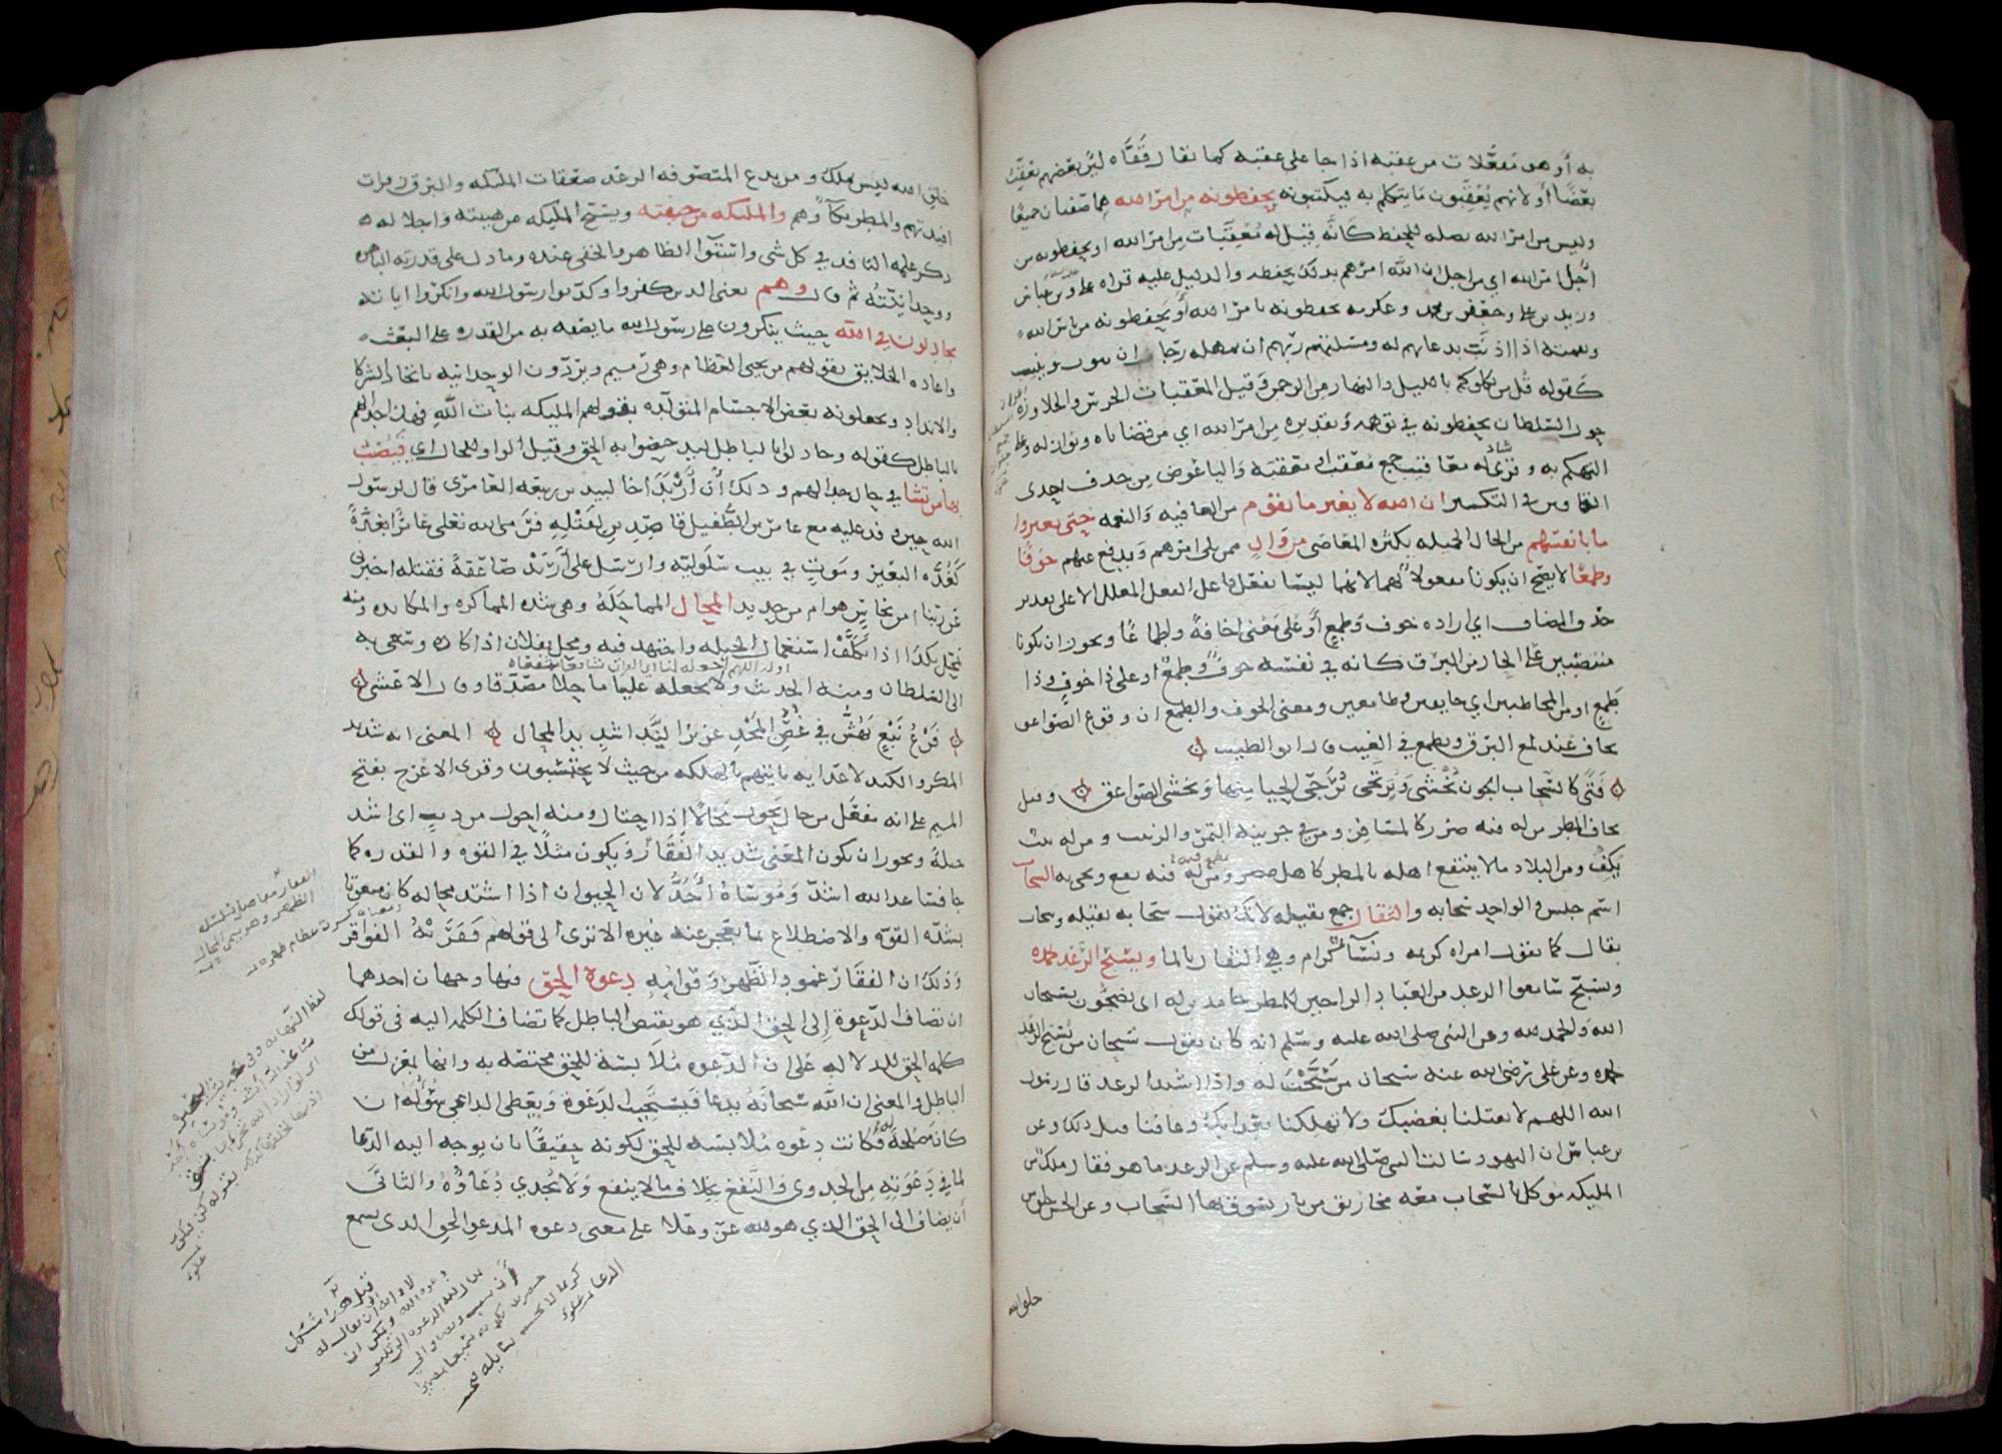 به أو هو مفعلات من عقبه اذا جا على عقبه كما يقال قفّاه لئن بعضهم يعقّب
بعضًا أو لانهم يُعقّبون ما يتكلم به فيكتبونه يحفظونه من امر الله هما صفتان جميعًا
وليس من امر الله بصله للحفظ كأنه قيل له معقبات من امر الله او يحفظونه من
أجل امر الله اي من اجل ان الله امرهم بذلك يحفظه والدليل عليه قراه على وبن عباس
وزيد بن على وجعفر بن محمد وعكرمه يحفظونه بامر الله أو يحفظونه من باس الله
ونقمته اذا اذنب بدعايهم له ومسئلتهم ربهم ان يمهله رجا ان يتوب وينيب
كقوله قل من يكلوكم بالليل والنهار من الرحمن وقيل المعقبات الحرس والجلاوزه
حول السلطان يحفظونه في توهمه وتقديره من امر الله اي من قضاياه ونوازله وعلى
التهكم به وقرى له معاقيب جمع معقب او معقبه واليا عوض من حذف احدى
القافين في التكسير ان الله لا يغير ما بقوم من العافيه والنعمه حتى يغيروا
ما بانفسهم من الحال الجميله بكثره المعاصى من وال ممن يلى امرهم ويدفع عنهم خوفًا
وطمعًا لا يصح ان يكونا مفعولا لهما لانهما ليسا بفعل فاعل الفعل المعلل الا على تقدير
حذف المضاف اي اراده خوف وطمع أو على معنى اخافةً واطماعًا ويجوز ان يكونا
منتصبين على الحال من البرق كانه في نفسه خوف وطمع او على ذا خوف وذا
طمع او من المخاطبين اي خايفين وطامعين ومعنى الخوف والطمع ان وقوع الصواعق
يخاف عند لمع البرق ويطمع في الغيث قال ابو الطيب
فتًى كالسحاب الجون تُخشى وتُرتجى تُرَجّى الحيا منها وتخشى الصواعق وقيل
يخاف المطر من له فيه ضرر كالمسافر ومن في جرينه التمر والزبيب ومن له بيت
يكف ومن البلاد ما لا ينتفع اهله بالمطر كاهل مصر ومن له فيه نفع ويحيى به السحاب
اسم جنس والواحد سحابه والثقال جمع ثقيله لانك تقول سحابه ثقيله وسحاب
ثقال كما تقول امراه كريمه ونسآ كرام وهي الثقال بالما ويسبح الرعد بحمده
ويسبح سامعوا الرعد من العباد الراجين للمطر حامدين له اى يضجون بسبحان
الله والحمد لله وعن النبى صلى الله عليه وسلم انه كان يقول سبحان من يسبح الرعد
بحمده وعن على رضى الله عنه سبحان من سَبَّحْتَ له واذا اشتد الرعد قال رسول
الله اللهم لا تقتلنا بغضبك ولا تهلكنا بعذابك وعافنا قبل ذلك وعن
بن عباس ان اليهود سالت النبى صلى الله عليه وسلم عن الرعد ما هو فقال ملك من
المليكه موكل بالسحاب معه مخاريق من نار يسوق بها السحاب وعن الحسن خلق من
خلق الله
خلق الله ليس بملك ومن بدع المتصوفه الرعد صعقات المليكه والبرق زفرات
افيدتهم والمطر بكآؤهم والمليكه من خيفته ويسبح المليكه من هيبته واجلاله
ذكر علمه النافد في كل شى واستوآ الظاهر والخفى عنده وما دل على قدرته الباهره
ووحدانيته ثم قال وهم يعنى الدين كفروا وكذبوا رسول الله وانكروا اياته
يجادلون في الله حيث ينكرون على رسول الله ما يصفه به من القدره على البعث
واعاده الخلايق بقولهم من يحيى العظام وهى رميم ويردّون الوحدانيه باتخاذ الشركا
والانداد ويجعلونه بعض الاجسام المتولده بقولهم المليكه بنات الله فهذا جدالهم
بالباطل كقوله وجادلوا بالباطل ليدحضوا به الحق وقيل الواو للحال اي فيصيب
بها من يشا في حال جدالهم وذلك أن أربد اخا لبيد بن ربيعه العامرى قال لرسول
الله حين وفد عليه مع عامر بن الطفيل قاصدين لقتله فرمى الله تعالى عامرًا بغدة
كغده البعير وموتٍ في بيت سلوليه وارسل على أربد صاعقةً فقتله اخبرنى
عن ربنا امن نحاس هو ام من حديد المحال المماحلة وهى شده المماكره والمكايده ومنه
تمحل بكذا اذا تكلف استعمال الحيله واجتهد فيه ومحل بفلان اذا كاده وسعى به
الى السلطان ومنه الحديث ولا تجعله علينا ماحلا مصدقا وقال الاعشى
فرع نبع يهش في غصن المجد غزير الندى شديد المحال المعنى انه شديد
المكر والكيد لاعدايه ياتيهم بالهلكه من حيث لا يحتسبون وقرى الاعرج بفتح
الميم على انه مفعل من حال يحول محالًا اذا احتال ومنه احول من ذيب اى اشد
حيلة ويجوز ان يكون المعنى شديد الفقار ويكون مثلًا في القوه والقدره كما
جا فساعد الله اشدّ وموساه أحَدّ لان الحيوان اذا اشتد محاله كان منعوتا
بشده القوه والاضطلاع بما يعجز عنه غيره الا ترى الى قولهم فقرته الفواقر
وذلك ان الفقار عمود الظهر وقوامه دعوة الحق فيها وجهان احدهما
ان تضاف الدعوة إلى الحق الذي هو نقيض الباطل كما تضاف الكلمه اليه في قولك
كلمه الحق للدلاله على ان الدعوه ملابسة للحق مختصه به وانها بمعزل من
الباطل والمعنى ان الله سبحانه يدعا فيستجيب الدعوة ويعطى الداعي سؤله ان
كان مصلحة له فكانت دعوه ملابسه للحق لكونه حقيقًا بان يوجه اليه الدعا
لما في دعوته من الجدوى والنفع بخلاف ما لا ينفع ولا يجدي دعاؤه والثانى
أن يضاف الى الحق الذي هو الله عز وعلا على معنى دعوه المدعو الحق الذى يسمع